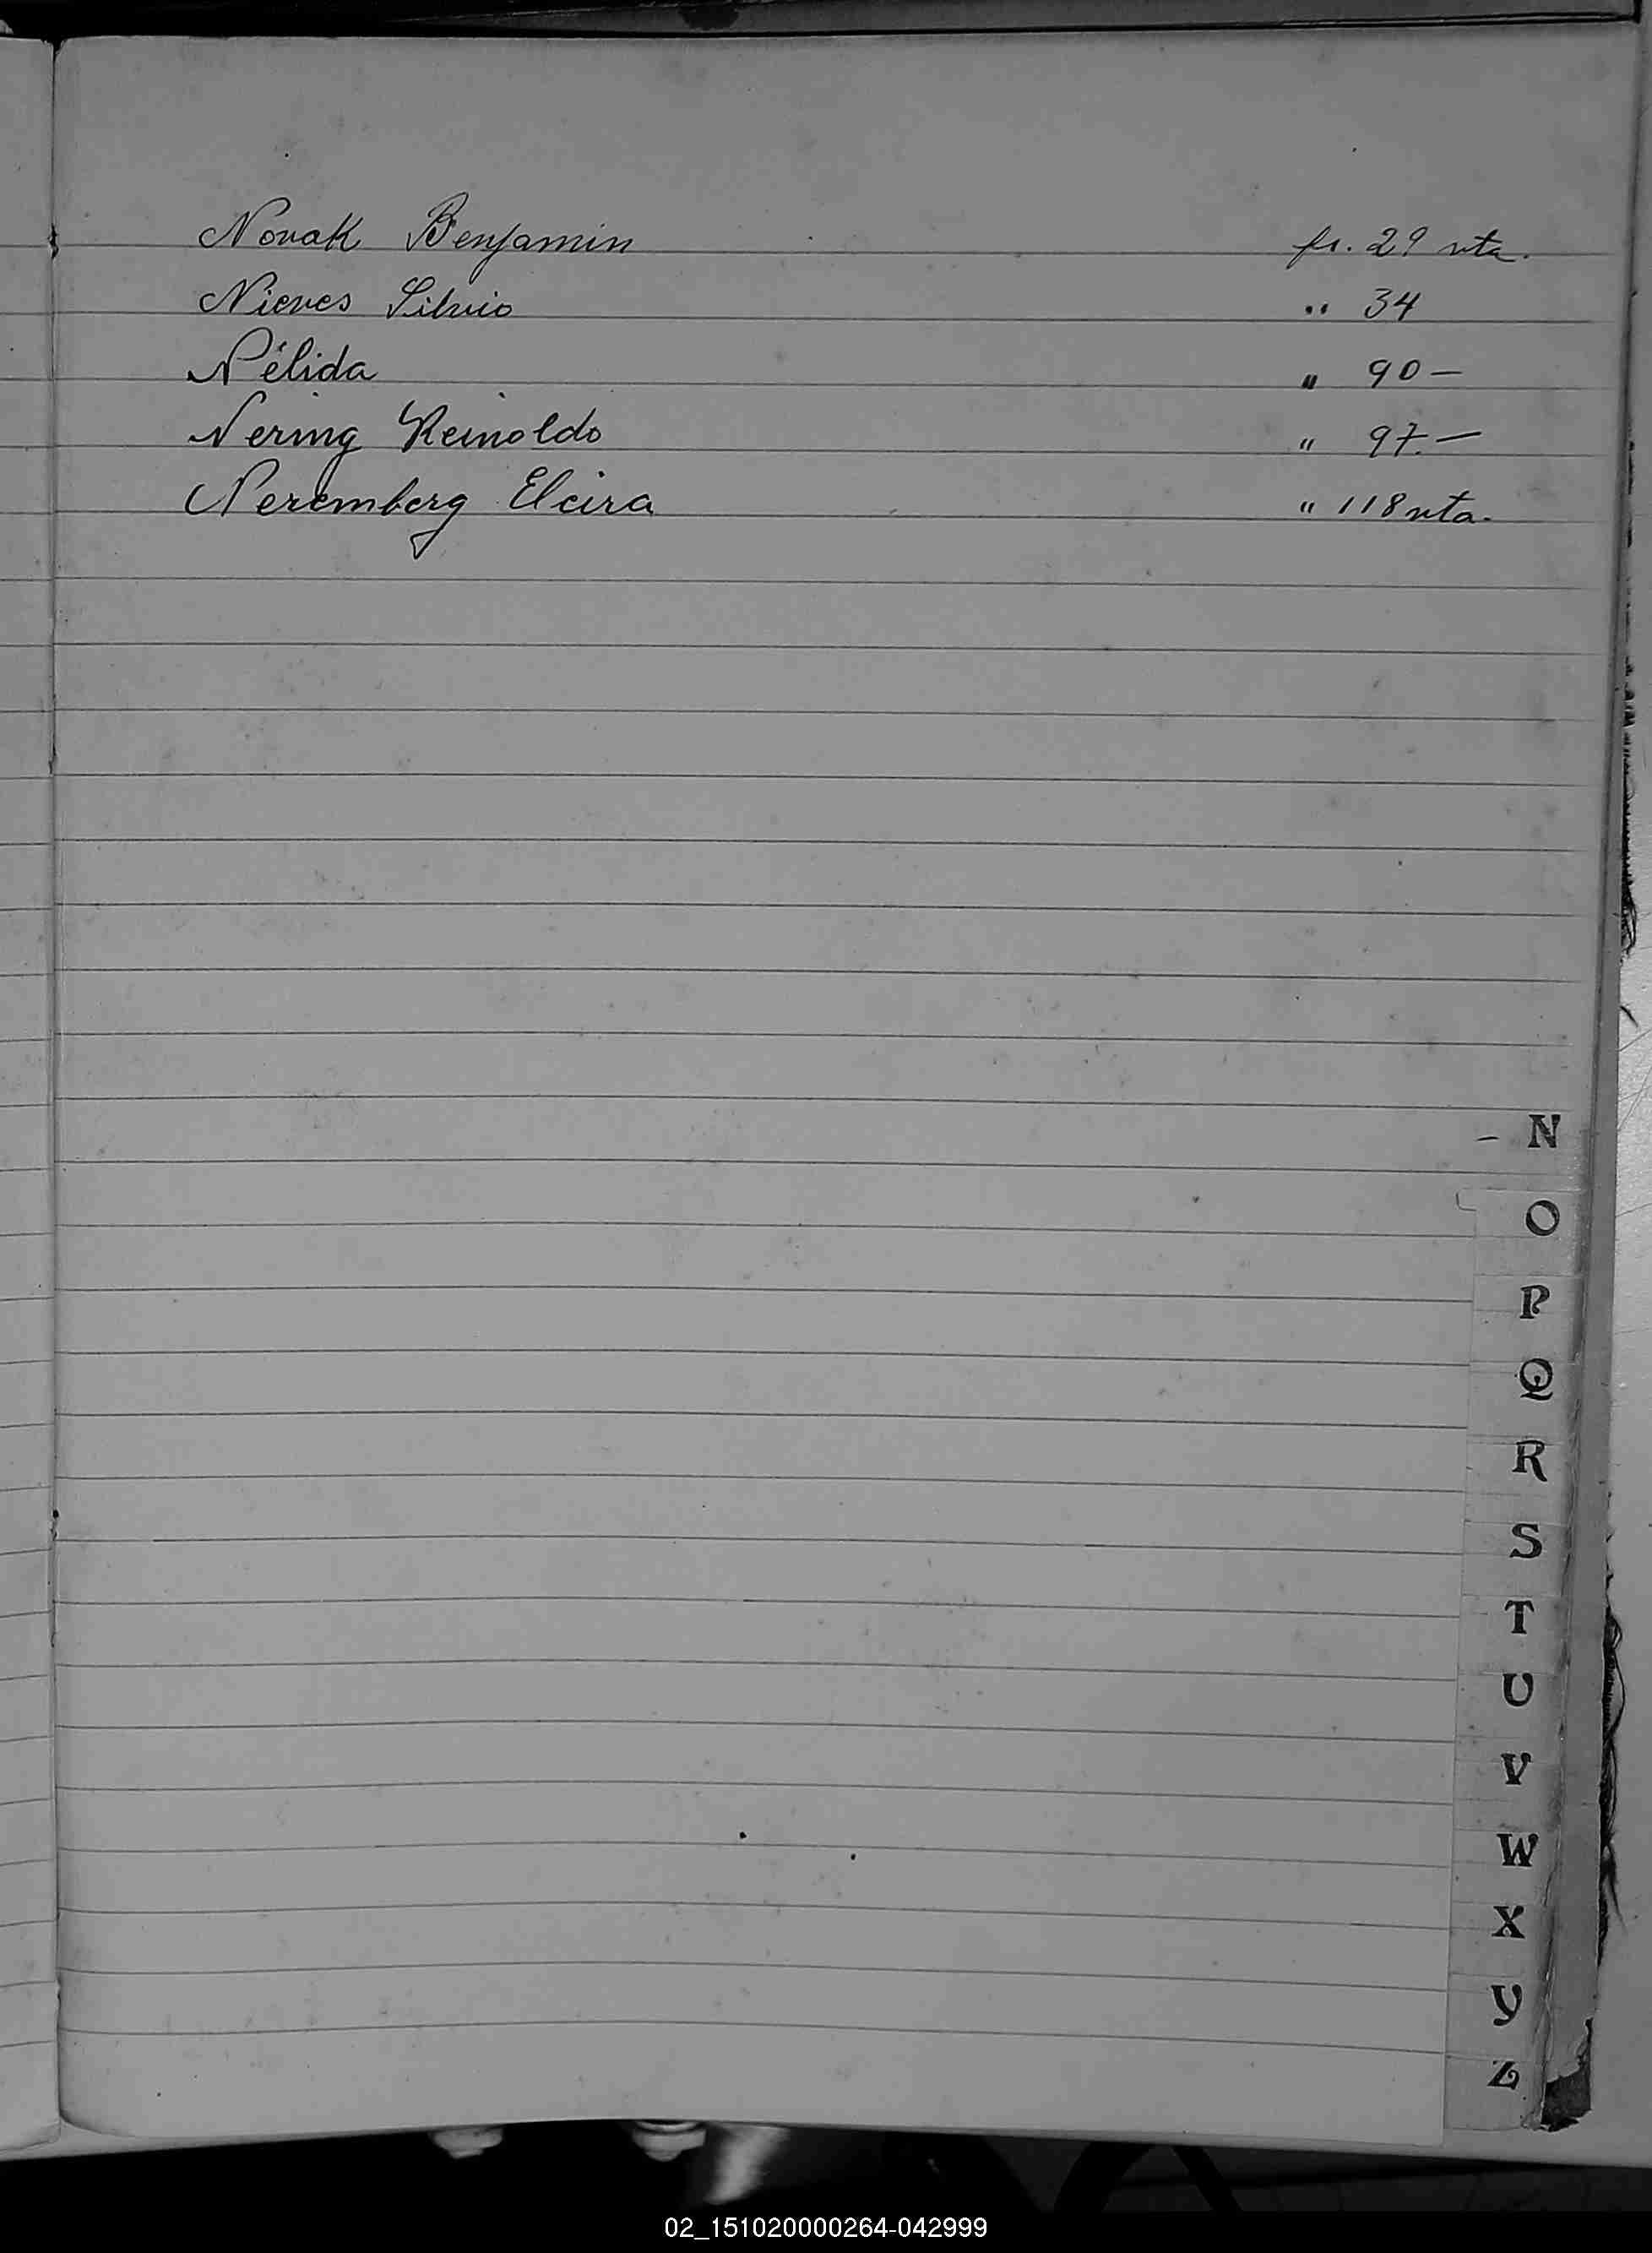 Novak Benjamin fs. 29 vta.
Nieves Silvio " 34
Nélida " 90 —
Nering Reinoldo " 97. —
Neremberg Elcira " 118 vta.
- N
O
P
Q
R
S
T
U
V
W
X
Y
Z
02_151020000264-042999